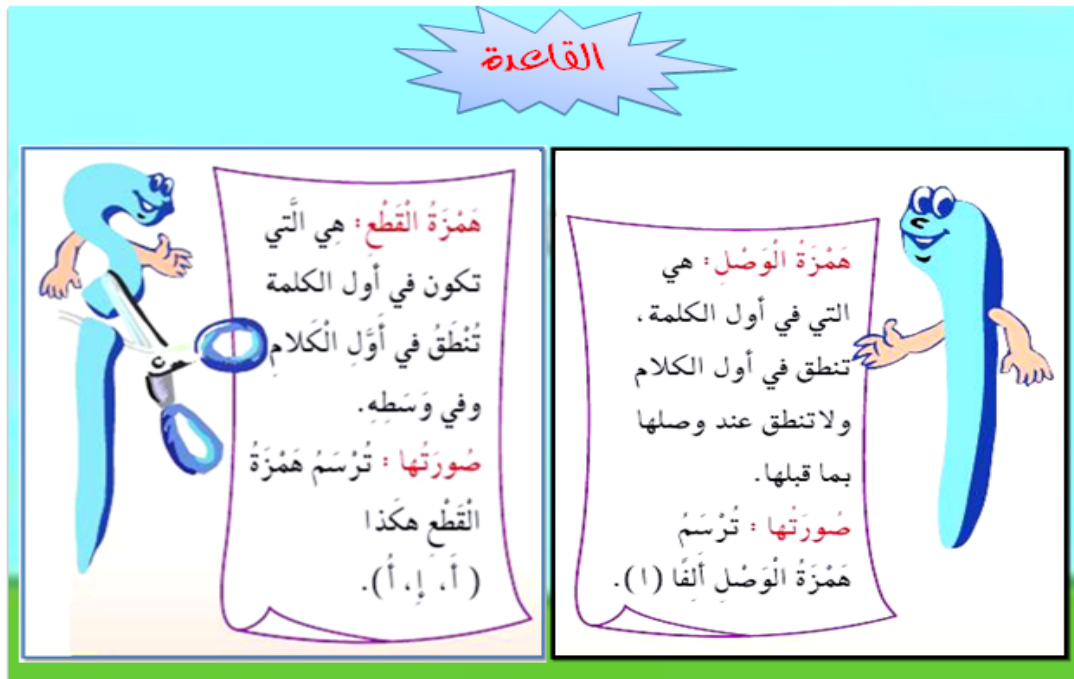 القاعدة
هَمْزَةُ الْوَصْلِ: هي
التي في أول الكلمة،
تنطق في أول الكلام
ولاتنطق عند وصلها
بما قبلها.
صُورَتُها : تُرْسَمُ
هَمْزَةُ الْوَصْلِ أَلِفًا (ا).
هَمْزَةُ الْقَطْعِ: هِي الَّتي
تكون في أول الكلمة
تُنْطَقُ في أَوَّلِ الْكَلامِ
وفي وَسَطِهِ.
صُورَتُها : تُرْسَمُ هَمْزَةُ
الْقَطْعِ هكَذا
( أَ، إِ، أُ).